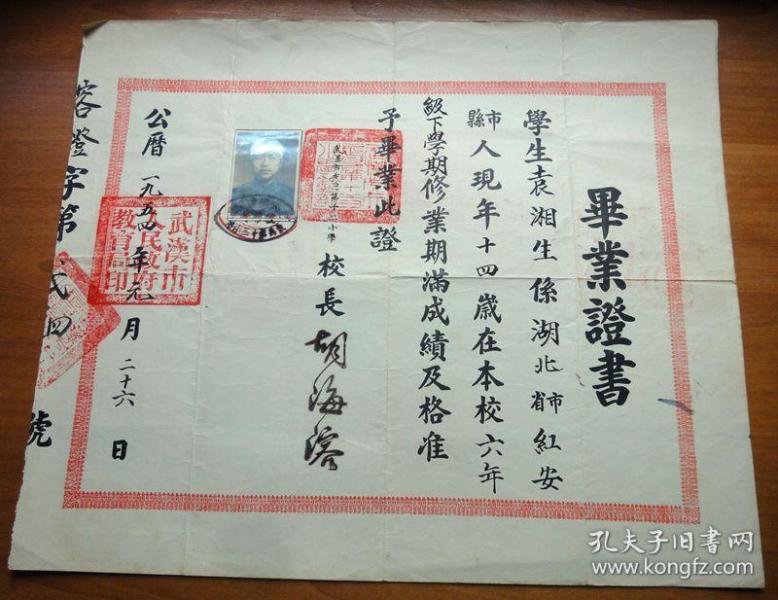 畢業證書
學生袁湘生係湖北省市紅安
市縣人現年十四歲在本校六年
級下學期修業期滿成績及格准
予畢業此證
小學
校長 胡海容
公曆一九五四年元月二十六日
武漢市人民政府教育局印
容證字第 弍四 號
孔夫子旧书网
www.kongfz.com